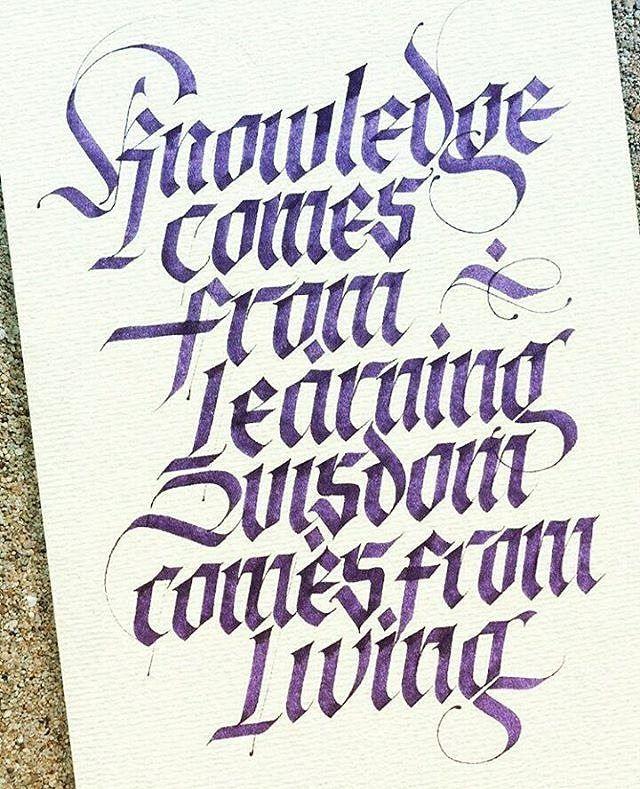 Knowledge
comes
from
Learning
Wisdom
comes from
Living